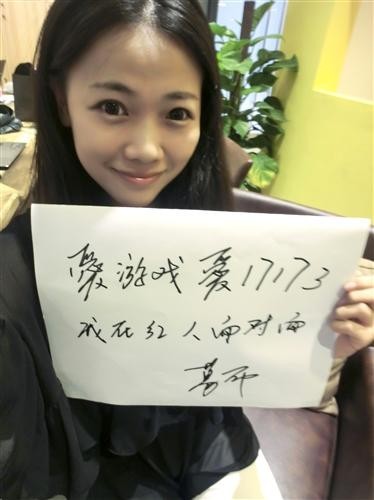 聚游戏 爱17173
我在红人面对面
葛